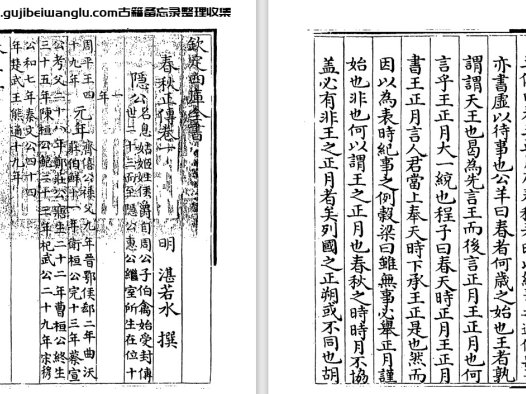 .gujibeiwanglu.com古籍备忘录整理收集
欽定四庫全書
春秋正傳卷一
明 湛若水 撰
隱公 名息姑姬姓侯爵自周公子伯禽始受封傳
世一十三而至隱公惠公繼室所生在位十
一
年
元年
周平王四 齊僖公祿父九年晉鄂侯郄二年曲沃
十九年 莊伯鱓十一年衛桓公完十三年蔡宣
公考父二十八年鄭莊公寤生二十二年曹桓公終生
三十五年陳桓公鮑二十三年杞武公二十九年宋穆
公和七年秦文公四十四
年楚武王熊通十九年
亦書虛以待事也公羊曰春者何歲之始也王者孰
謂謂天王也曷為先言王而後言正月王正月也何
言乎王正月大一統也程子曰春天時正月王正月
書王正月言人君當上奉天時下承王正是也然而
因以為表時紀事之例穀梁曰雖無事必舉正月謹
始也非也何以謂王之正月也春秋之時時月不協
蓋必有非王之正月者矣列國之正朔或不同也胡